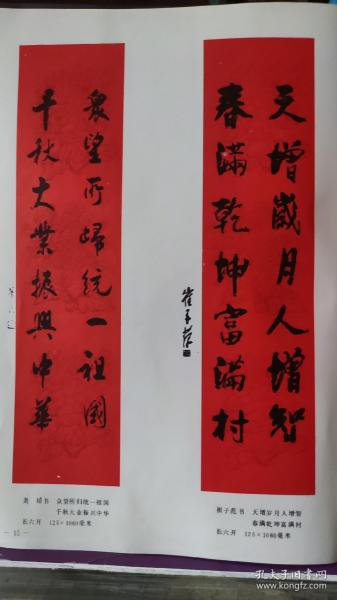 天增歲月人增智
春滿乾坤富滿村
崔子范
衆望所歸統一祖國
千秋大業振興中華
书 众望所归统一祖国
千秋大业振兴中华
长六开 125×1060毫米
崔子范书 天增岁月人增智
春满乾坤富满村
长六开 125×1060毫米
孔夫子旧书网